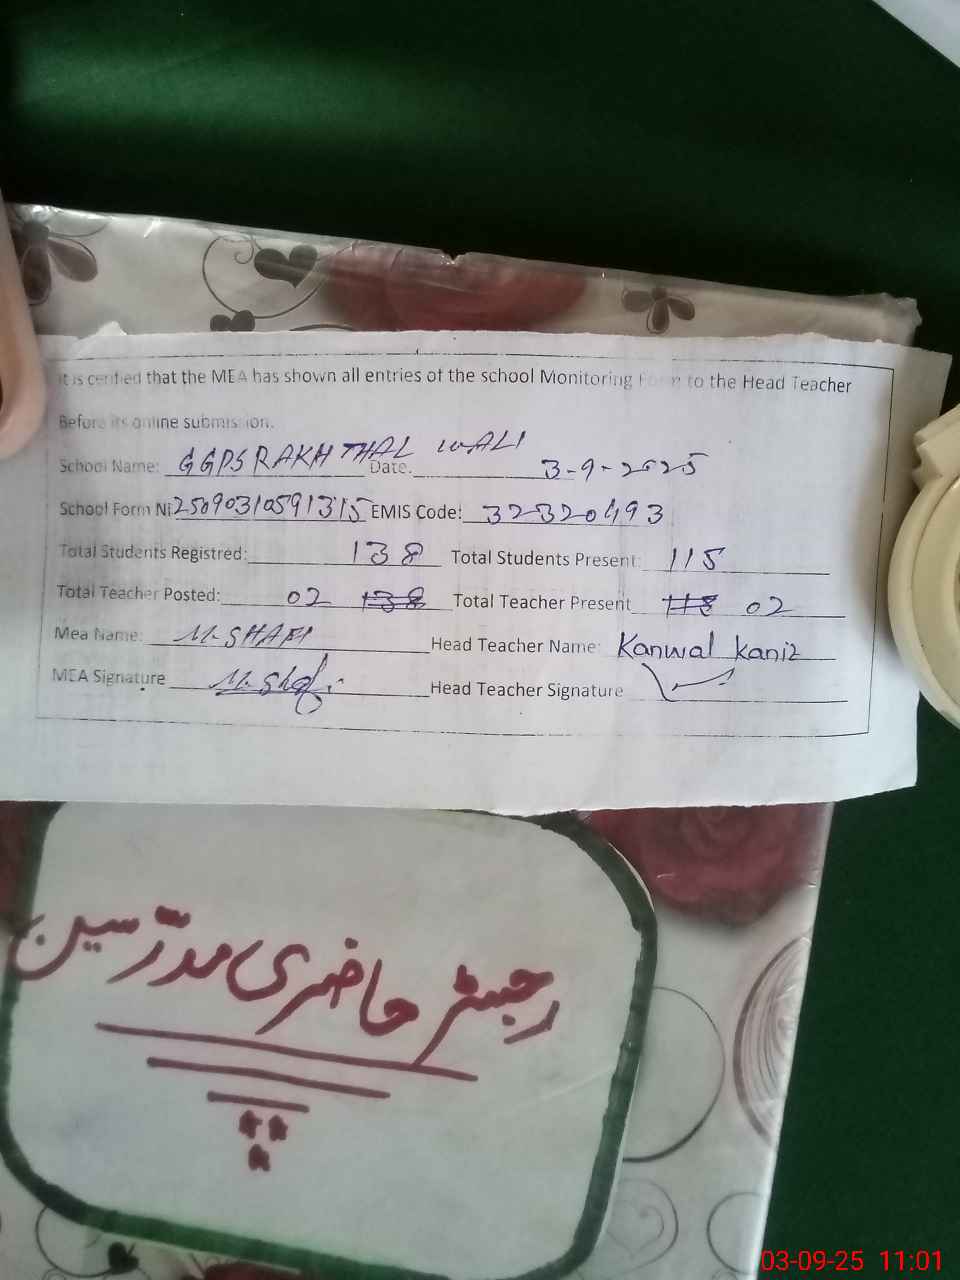 It is certified that the MEA has shown all entries of the school Monitoring Form to the Head Teacher
Before its online submission.
School Name: GGPS RAKH THAL WALI Date. 3-9-2025
School Form N: 25090310591315 EMIS Code: 32320493
Total Students Registred: 138 Total Students Present: 115
Total Teacher Posted: 02 138 Total Teacher Present 02
Mea Name: M. SHAFI Head Teacher Name: Kanwal kaniz
MEA Signature M. Shafi Head Teacher Signature
رجسٹر حاضری مدرّسین
03-09-25 11:01